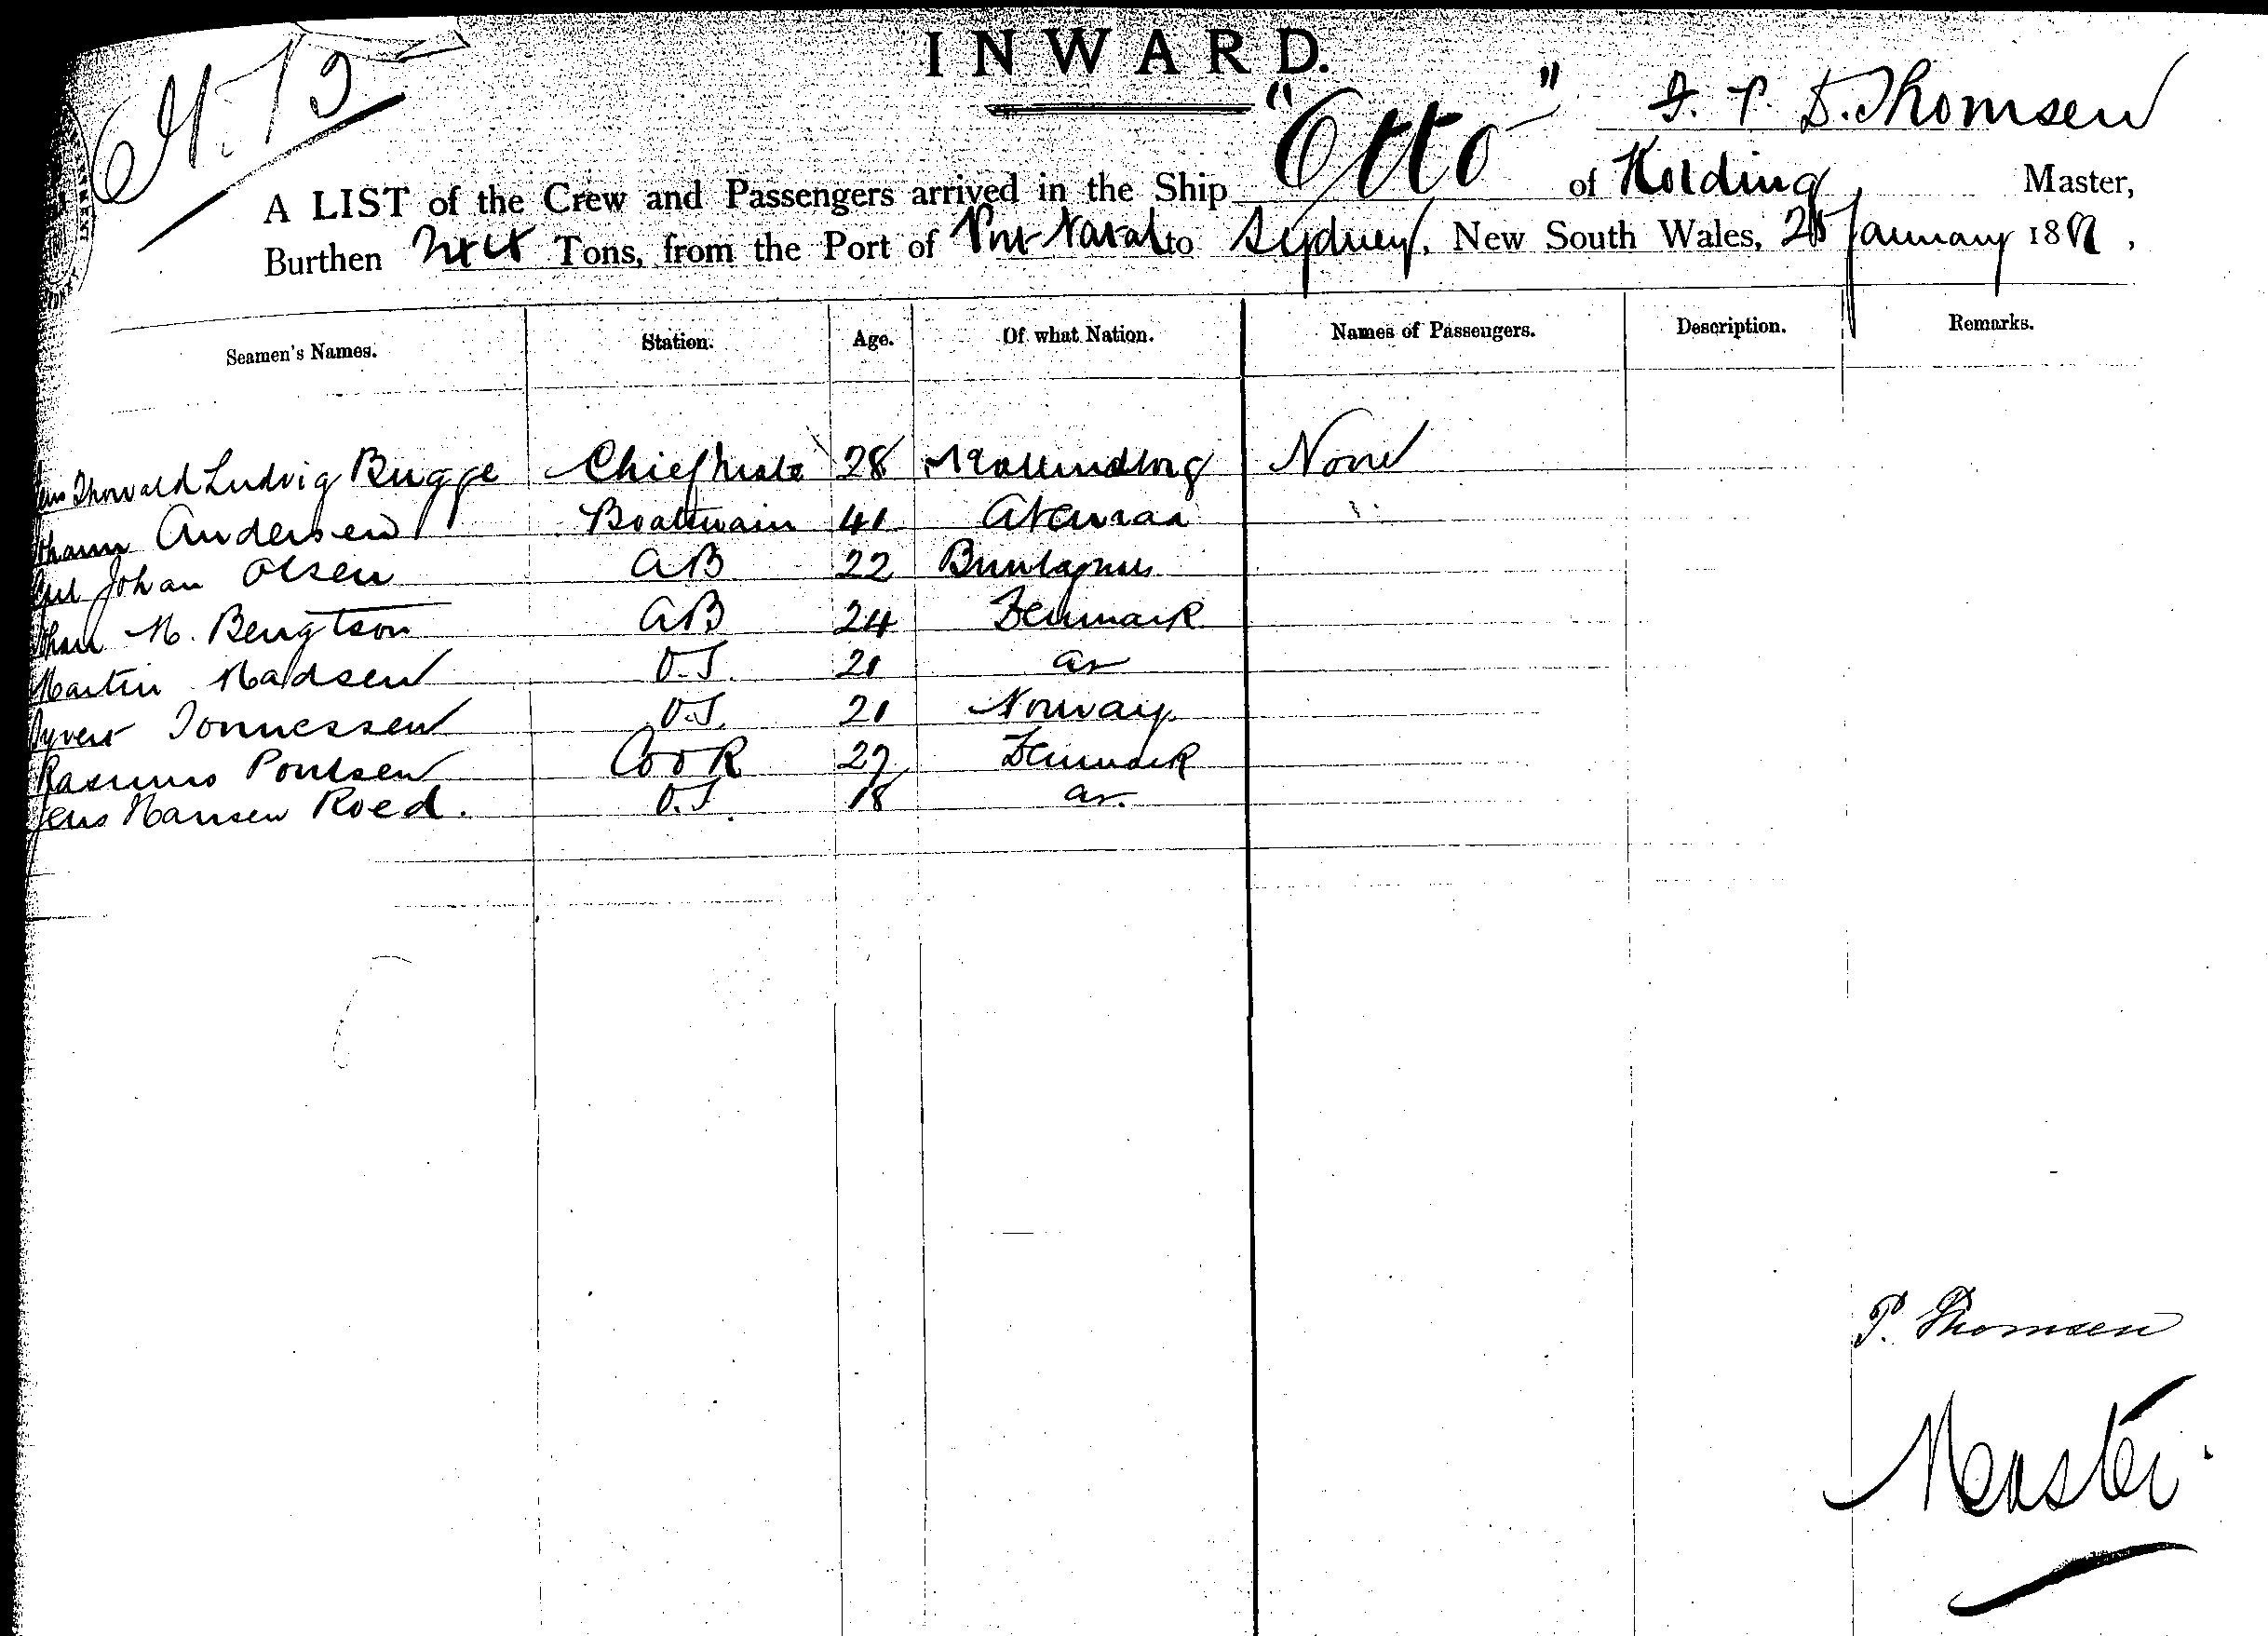 INWARD.
"Otto" D. Thomsen
A LIST of the Crew and Passengers arrived in the Ship of Kolding, Master,
Burthen Tons, from the Port of Port Natal to Sydney, New South Wales, January 18
Seamen's Names. Station. Age. Of what Nation. Names of Passengers. Description. Remarks.
Thorvald Ludvig Bugge Chief Mate 28 None
Andersen Boatswain 41
Johan Olsen AB 22
M. Bengtson AB 24 Denmark
Martin Madsen O.S. 21
Tonnessen O.S. 21 Norway
Rasmus Poulsen Cook 27 Denmark
Jens Hansen Roed. O.S. 18
P. Thomsen
Master